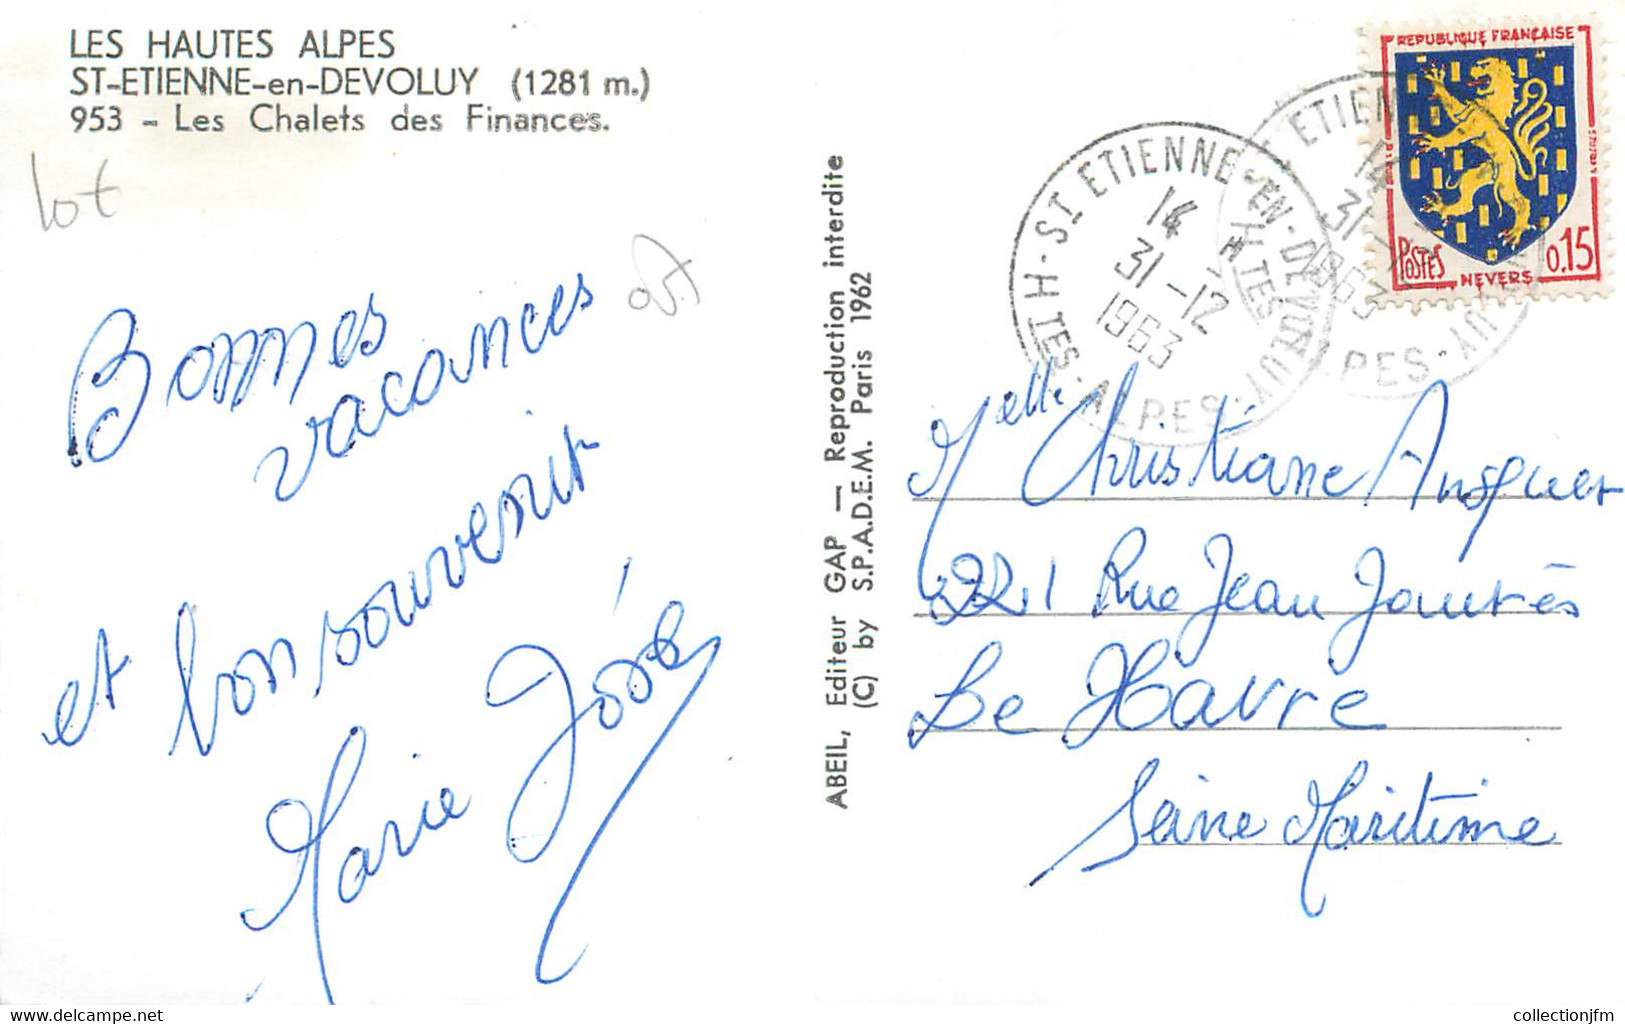 LES HAUTES ALPES
ST-ETIENNE-en-DEVOLUY (1281 m.)
953 - Les Chalets des Finances.
lot
Bonnes
vacances
et bon souvenir
Marie José
ABEIL, Editeur GAP — Reproduction interdite
(C) by S.P.A.D.E.M. Paris 1962
ST ETIENNE-EN-DEVOLUY
14
31-12
1963
HTES-ALPES
REPUBLIQUE FRANÇAISE
POSTES
NEVERS
0,15
Melle Christiane Ansquer
221 Rue Jean Jaurès
Le Havre
Seine Maritime
www.delcampe.net
collectionjfm